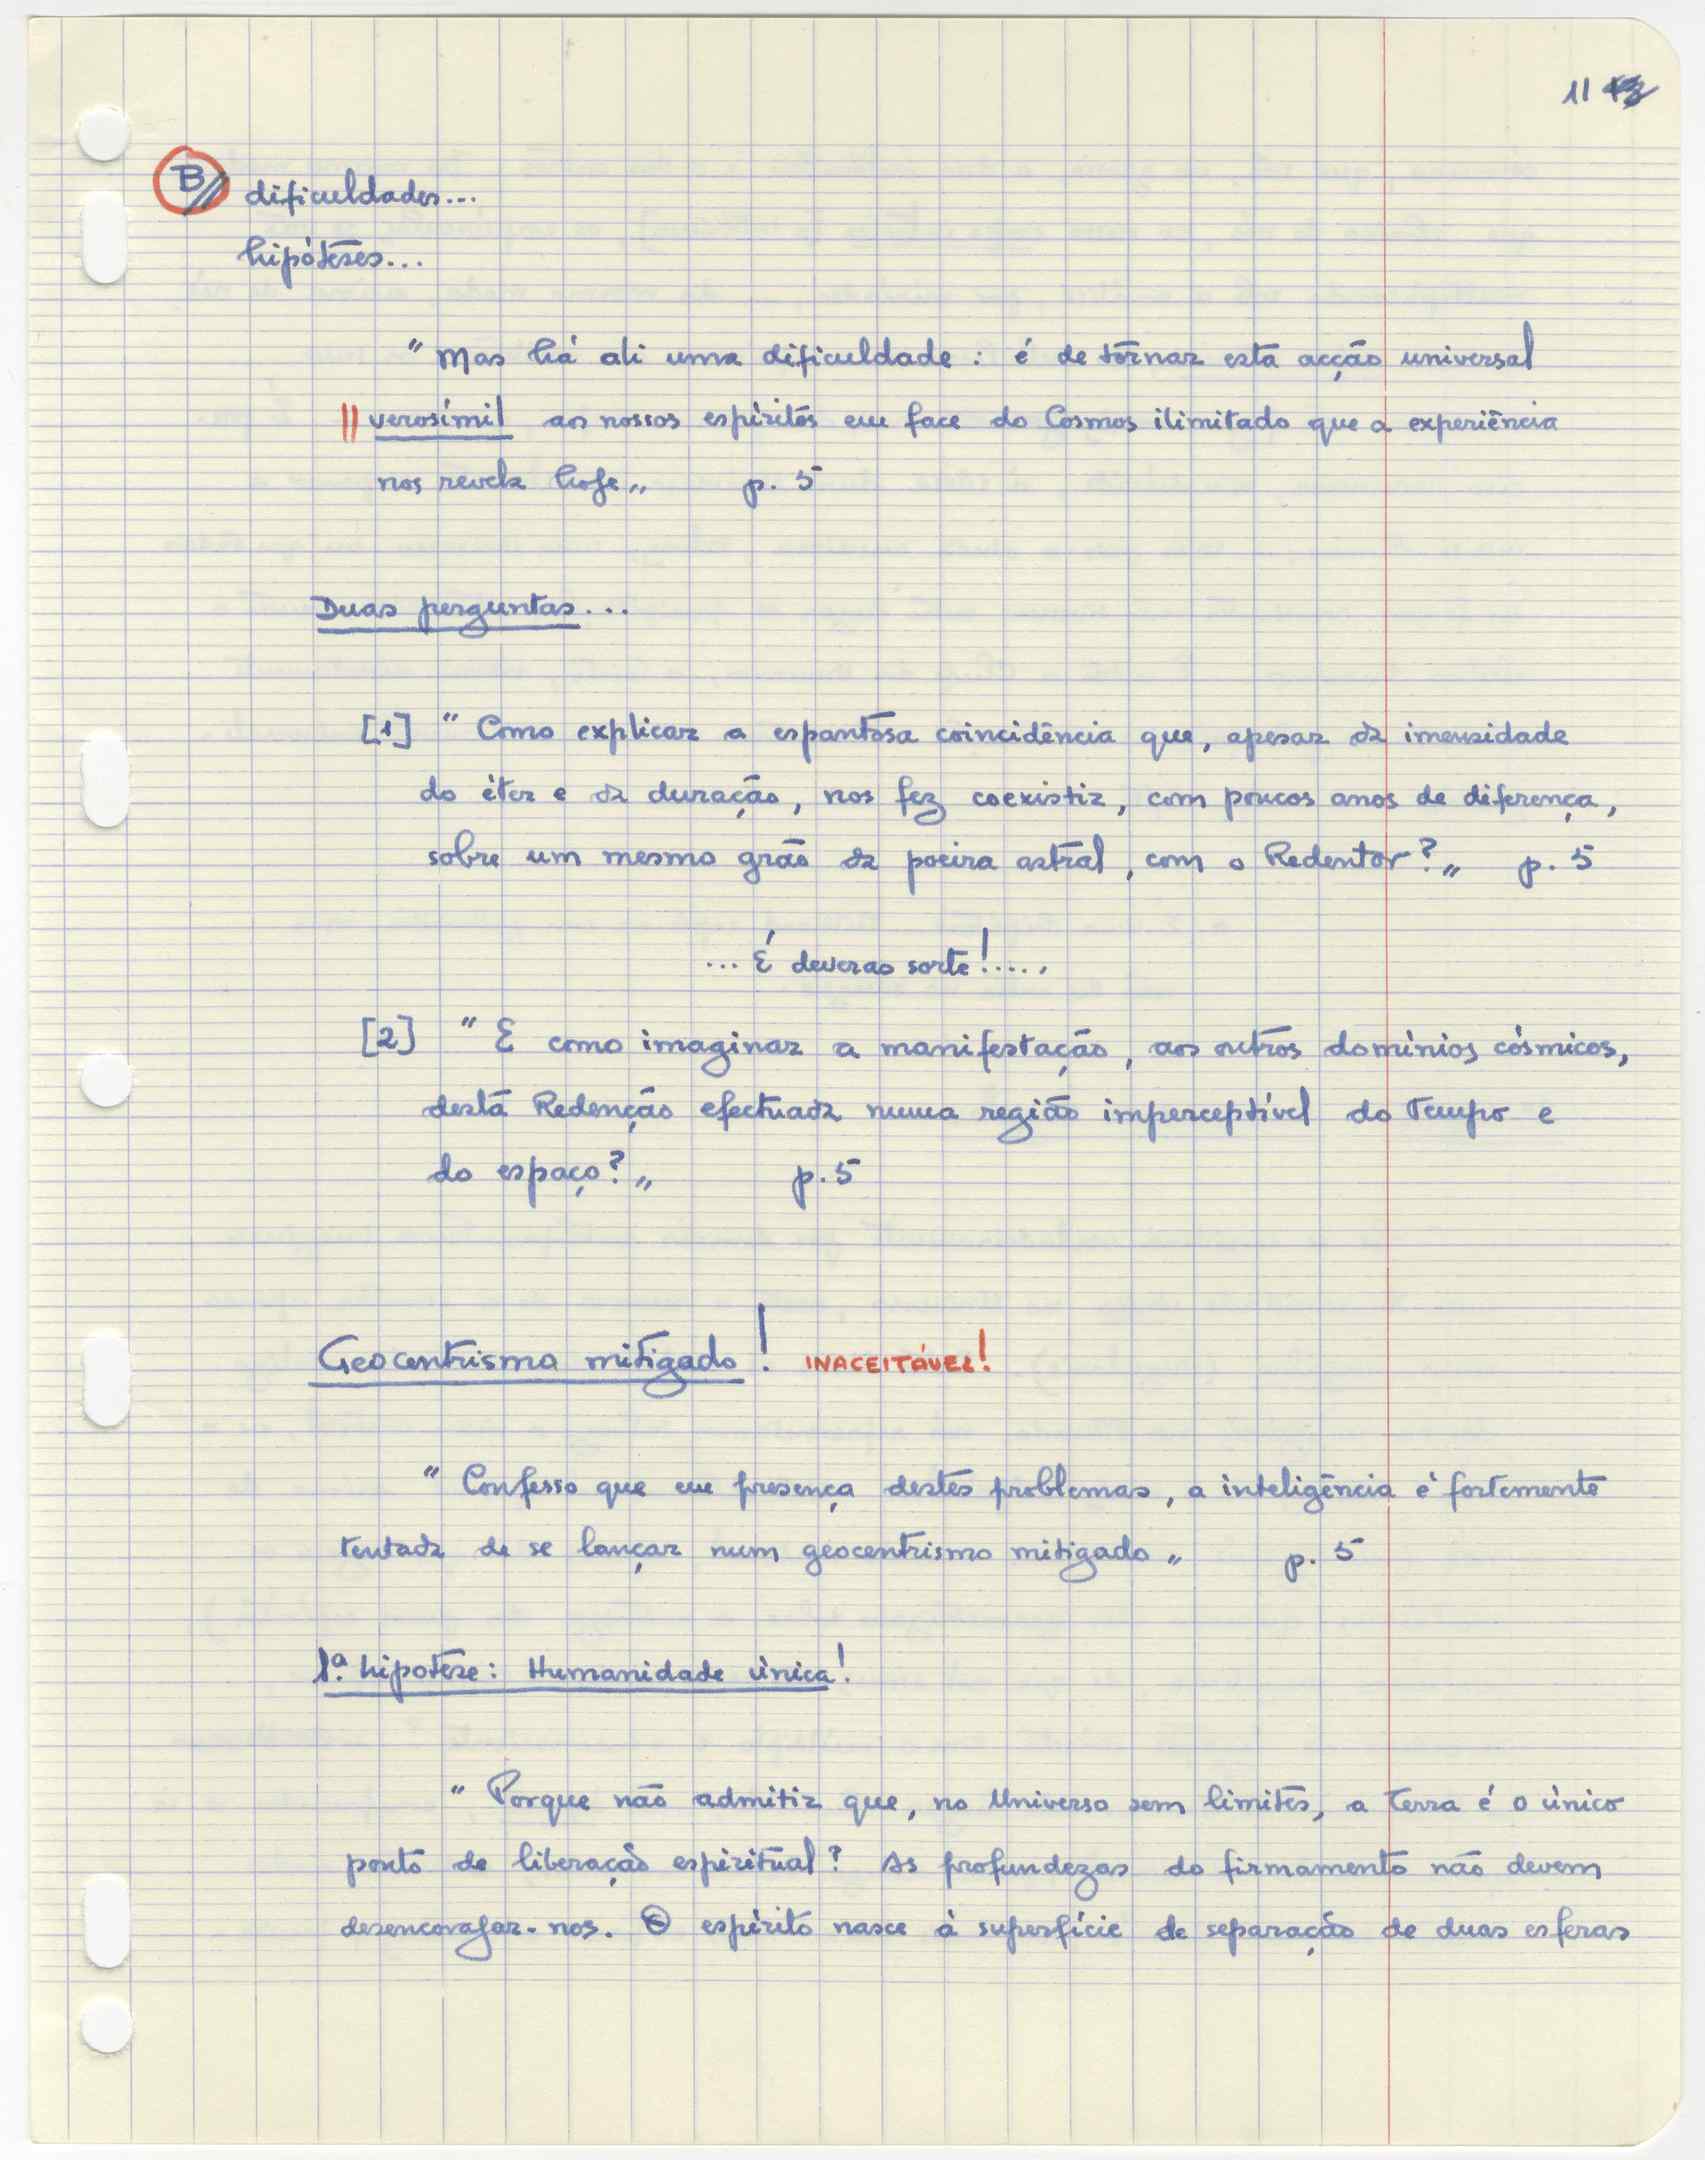 11
B// dificuldades...
hipóteses...
"Mas há ali uma dificuldade: é de tornar esta acção universal
|| verosímil aos nossos espíritos em face do Cosmos ilimitado que a experiência
nos revela hoje" p. 5
Duas perguntas...
[1] "Como explicar a espantosa coincidência que, apesar da imensidade
do éter e da duração, nos fez coexistir, com poucos anos de diferença,
sobre um mesmo grão da poeira astral, com o Redentor?" p. 5
... É deveras sorte!....
[2] "E como imaginar a manifestação, aos outros domínios cósmicos,
desta Redenção efectuada numa região imperceptível do tempo e
do espaço?" p. 5
Geocentrismo mitigado! INACEITÁVEL!
"Confesso que em presença destes problemas, a inteligência é fortemente
tentada de se lançar num geocentrismo mitigado" p. 5
1ª. hipótese: Humanidade única!
"Porque não admitir que, no Universo sem limites, a Terra é o único
ponto de liberação espiritual? As profundezas do firmamento não devem
desencorajar-nos. O espírito nasce à superfície de separação de duas esferas